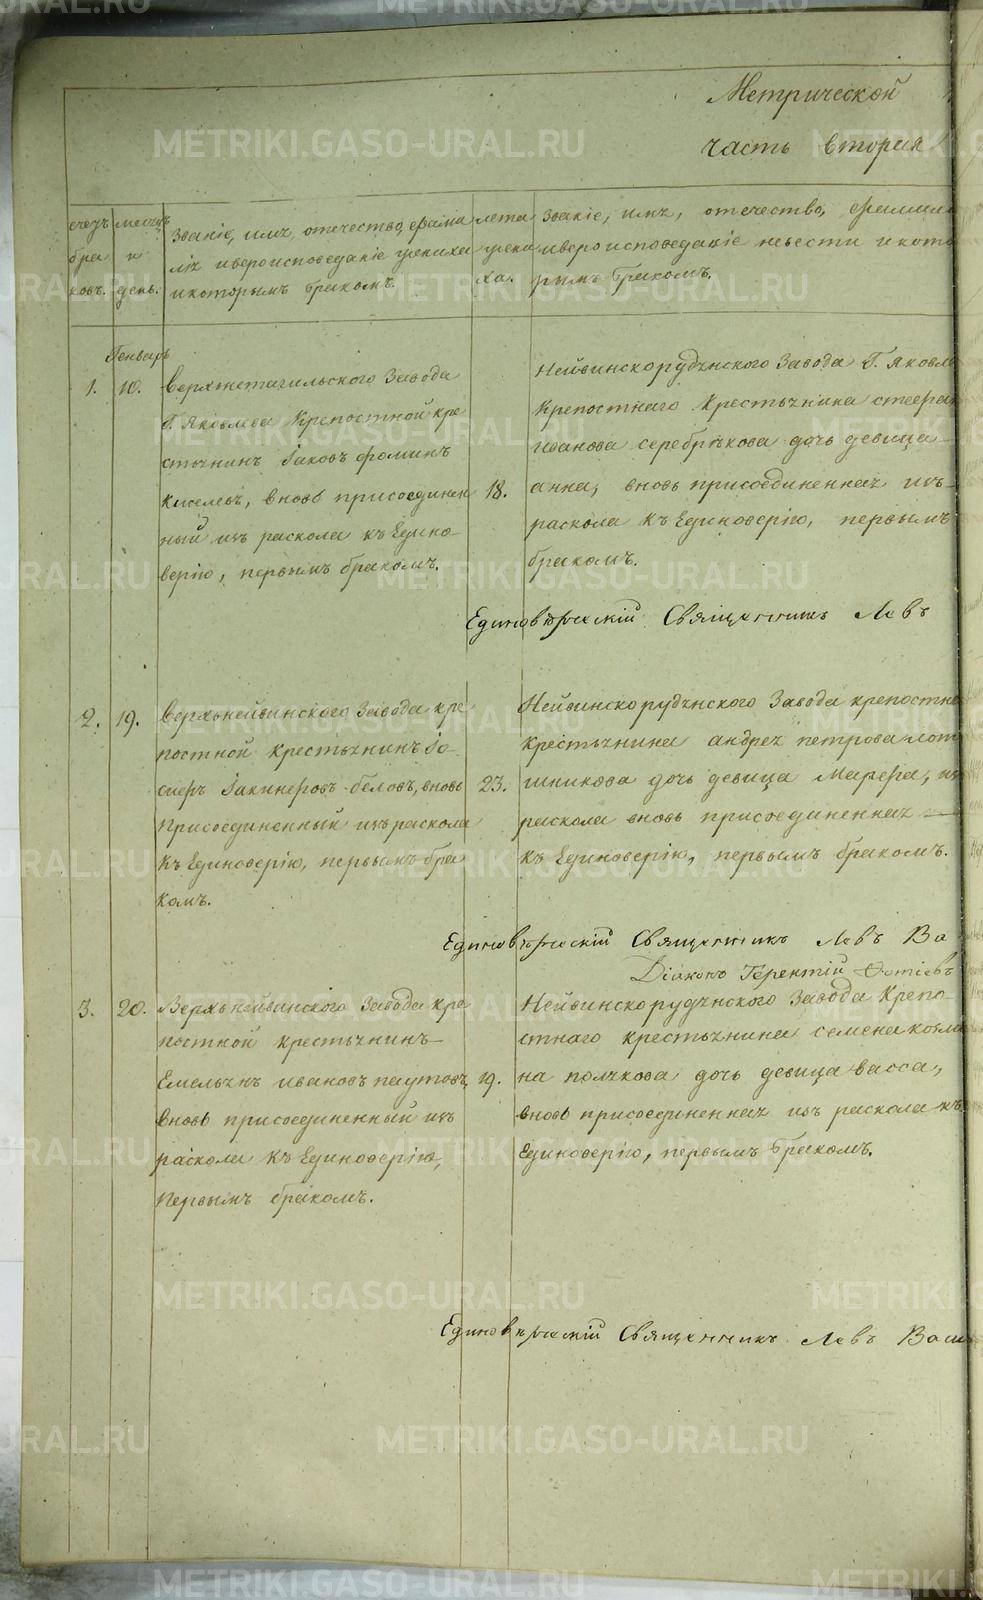 Метрической
часть вторая
счетъ браковъ.
месецъ и день.
Званіе, имя, отечество, фами
лія и вероисповеданіе жениха
и которымъ бракомъ.
лета
жени
ха.
Званіе, имя, отечество, фамилі
и вероисповеданіе невести и кото
рымъ бракомъ.
Генварь
1. 10.
Верхнетагильского Завода
Г. Яковлева Крепостной кре
стьянинъ Іаковъ Фоминъ
Киселевъ, вновь присоединен
ный изъ раскола къ Едино-
верію, первымъ бракомъ.
18.
Нейвинскорудянского Завода Г. Яковле
Крепостнаго Крестьянина стефан
Иванова серебрякова дочь девица
анна, вновь присоединенная изъ
раскола къ Единоверію, первымъ
бракомъ.
Единовѣрческій Священникъ Левъ
2. 19.
Верхьнейвинского Завода кре
постной крестьянинъ Іо-
сифъ Іакинфовъ Беловъ, вновь
Присоединенный изъ раскола
къ Единоверію, первымъ бра
комъ.
23.
Нейвинскорудянского Завода крепостна
крестьянина андрея петрова лот
шникова дочь девица Марфа, из
раскола вновь присоединенная
къ Единоверію, первымъ бракомъ.
Единовѣрческій Священникъ Левъ Ва
Діаконъ Терентій Фотіевъ
3. 20.
Верхьнейвинскіго Завода кре
постной крестьянинъ
Емельянъ ивановъ паутовъ,
вновь присоединенный изъ
раскола къ Единоверію,
Первымъ бракомъ.
19.
Нейвинскорудянского Завода Крепо-
стнаго крестьянина семена козми
на полякова дочь девица васса,
вновь присоединенная изъ раскола къ
Единоверію, первымъ бракомъ.
Единовѣрческій Священникъ Левъ Васи
METRIKI.GASO-URAL.RU